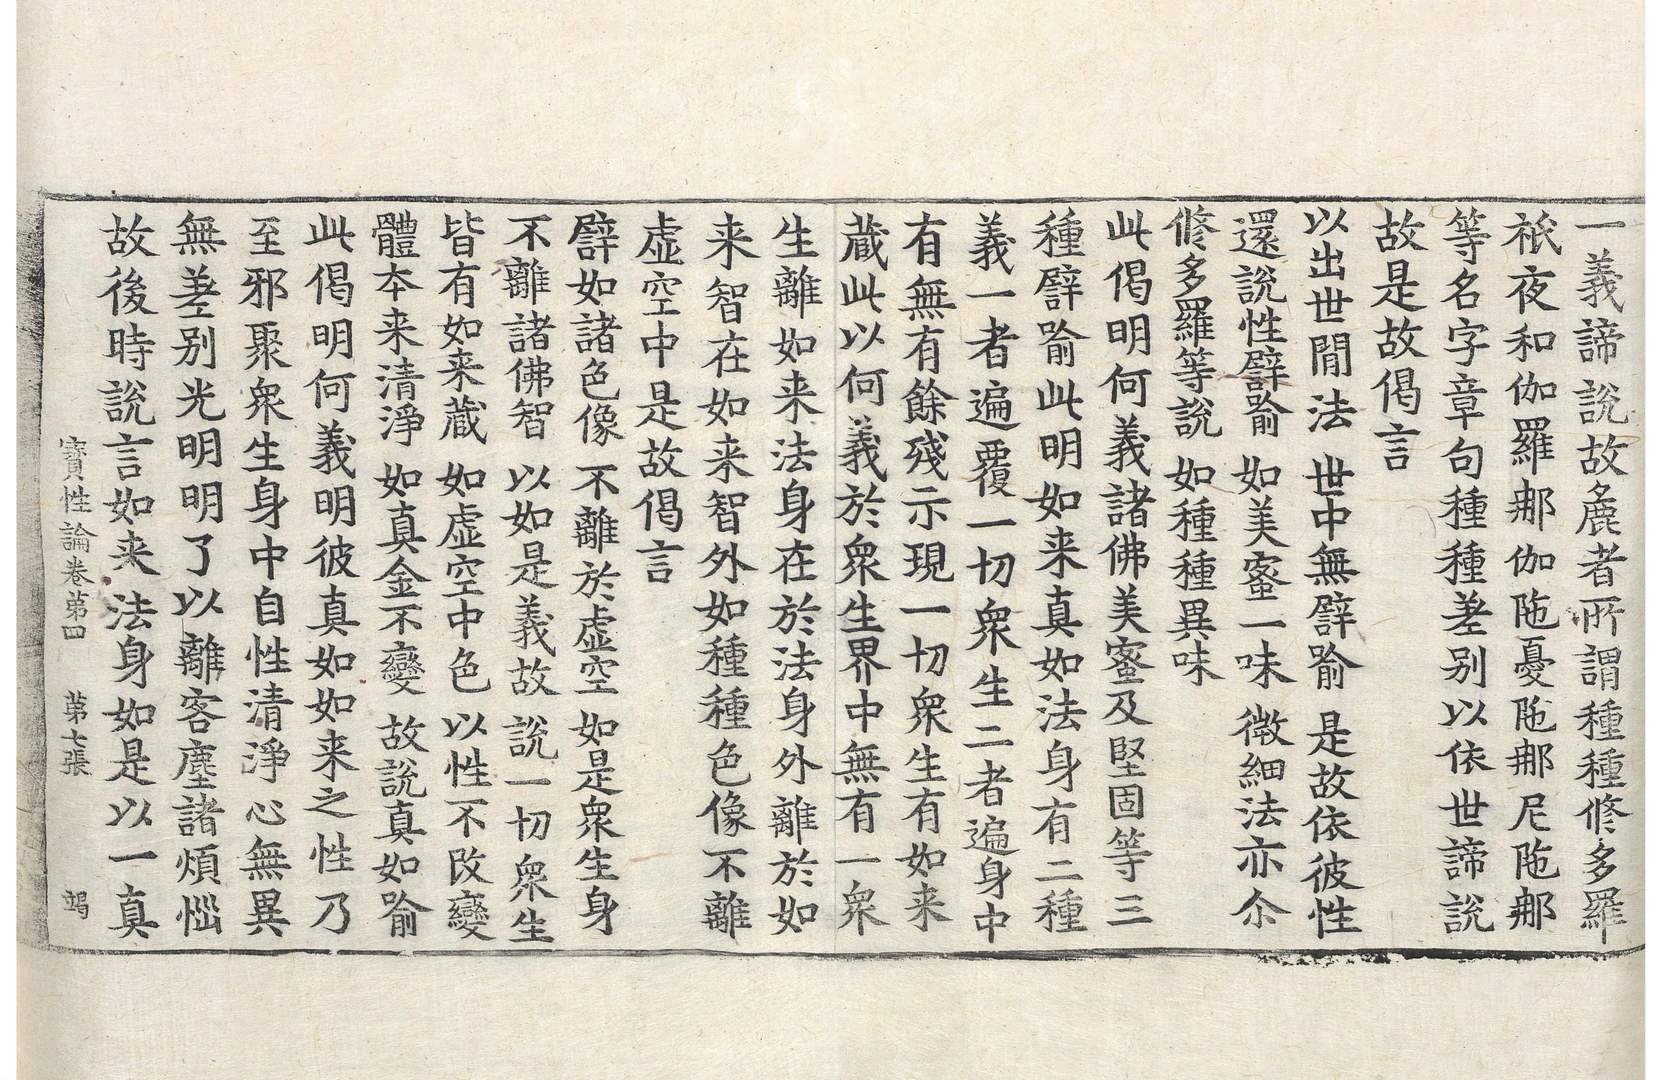 一義諦說故麁者所謂種種修多羅
祇夜和伽羅那伽陁憂陁那尼陁那
等名字章句種種差別以依世諦說
故是故偈言
以出世閒法 世中無譬喻 是故依彼性
還說性譬喻 如美蜜一味 微細法亦尒
修多羅等說 如種種異味
此偈明何義諸佛美蜜及堅固等三
種譬喻此明如来真如法身有二種
義一者遍覆一切衆生二者遍身中
有無有餘殘示現一切衆生有如来
蔵此以何義於衆生界中無有一衆
生離如来法身在於法身外離於如
来智在如来智外如種種色像不離
虛空中是故偈言
譬如諸色像 不離於虛空 如是衆生身
不離諸佛智 以如是義故 說一切衆生
皆有如来蔵 如虛空中色 以性不改變
體本来清淨 如真金不變 故說真如喻
此偈明何義明彼真如如来之性乃
至邪聚衆生身中自性清淨心無異
無差別光明明了以離客塵諸煩惱
故後時說言如来法身如是以一真
寶性論卷第四 第七張 竭